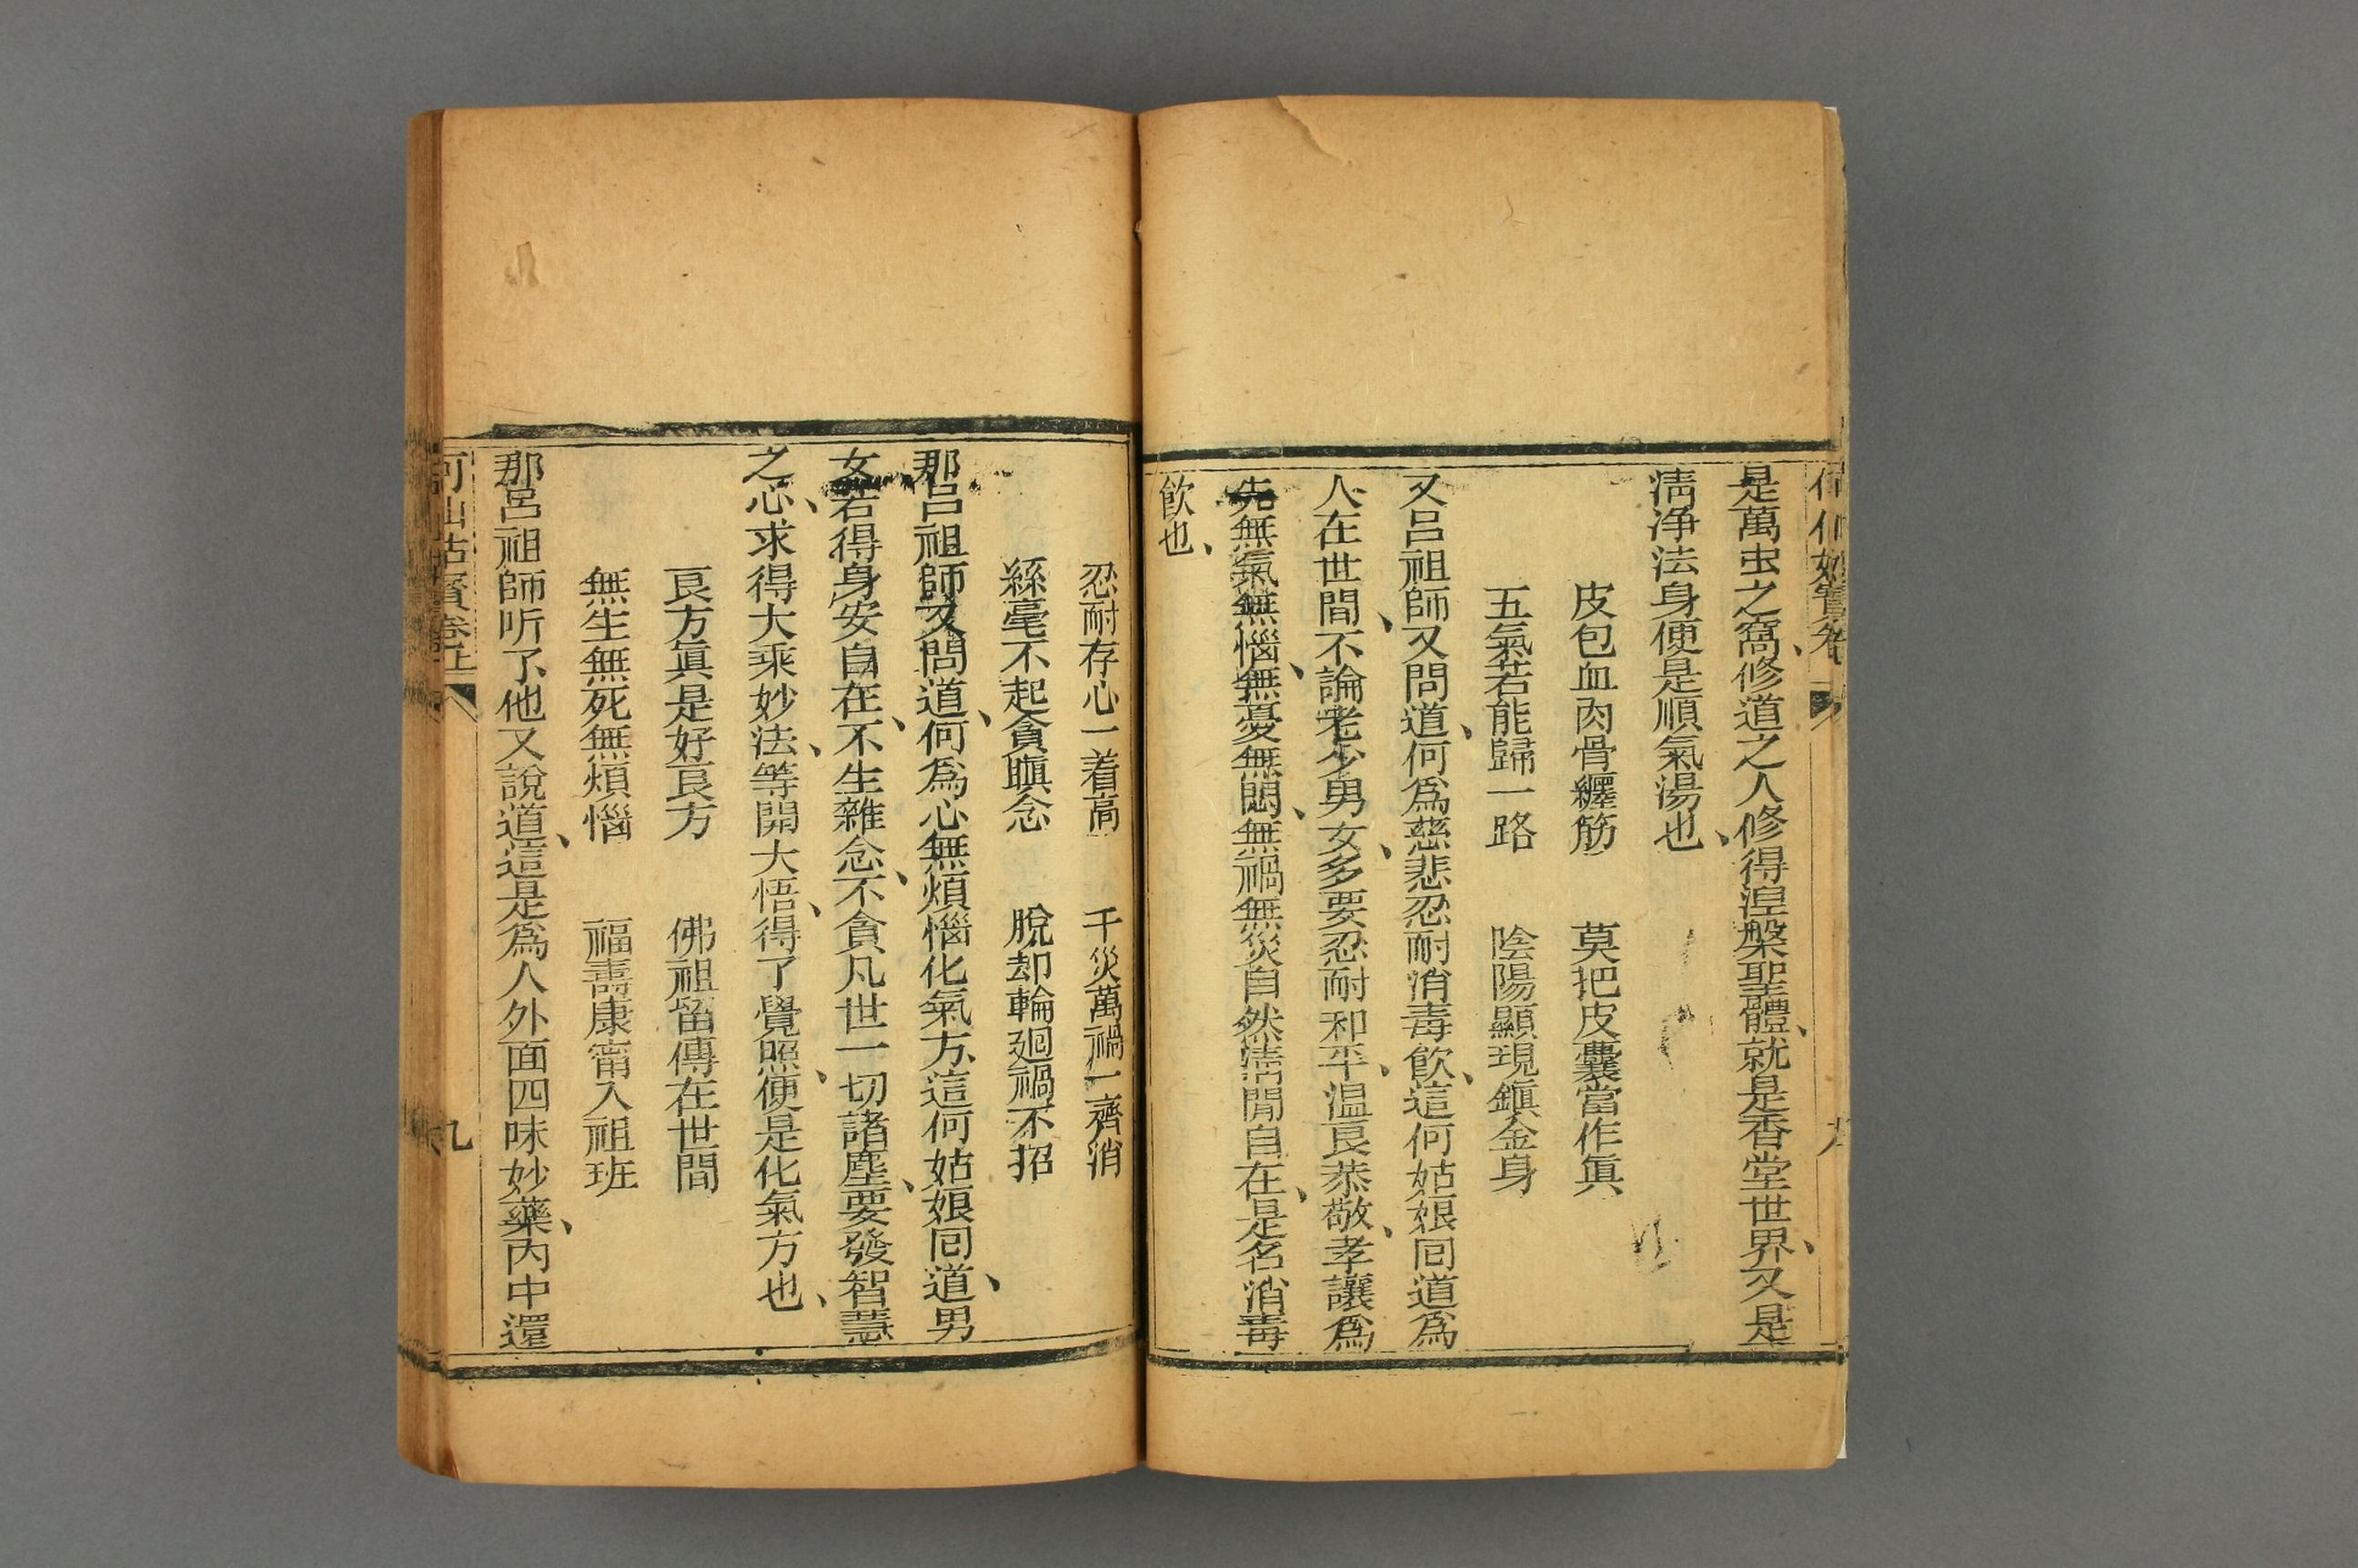 是萬虫之窩、修道之人修得湼槃聖體、就是香堂世界、又是
淸净法身便是順氣湯也、
皮包血肉骨纒筋　莫把皮囊當作眞
五氣若能歸一路　陰陽顯現鎭金身
又呂祖師又問道、何爲慈悲忍耐消毒飮、這何姑娘囘道爲
人在世間、不論老少男女、多要忍耐和平、温良恭敬、孝讓爲
先無氣無惱、無憂無悶、無禍無災自然淸閒自在、是名消毒
飮也、
忍耐存心一着高　千災萬禍一齊消
絲毫不起貪瞋念　脫却輪廻禍不招
那呂祖師又問道、何爲心無煩惱化氣方、這何姑娘囘道、男
女若得身安自在、不生雜念、不貪凡世一切諸塵、要發智慧
之心、求得大乘妙法、等開大悟、得了覺照、便是化氣方也、
良方眞是好良方　佛祖留傳在世間
無生無死無煩惱　福壽康甯入祖班
那呂祖師听了、他又說道、這是爲人外面四味妙藥、內中還
何仙姑寳卷上　九